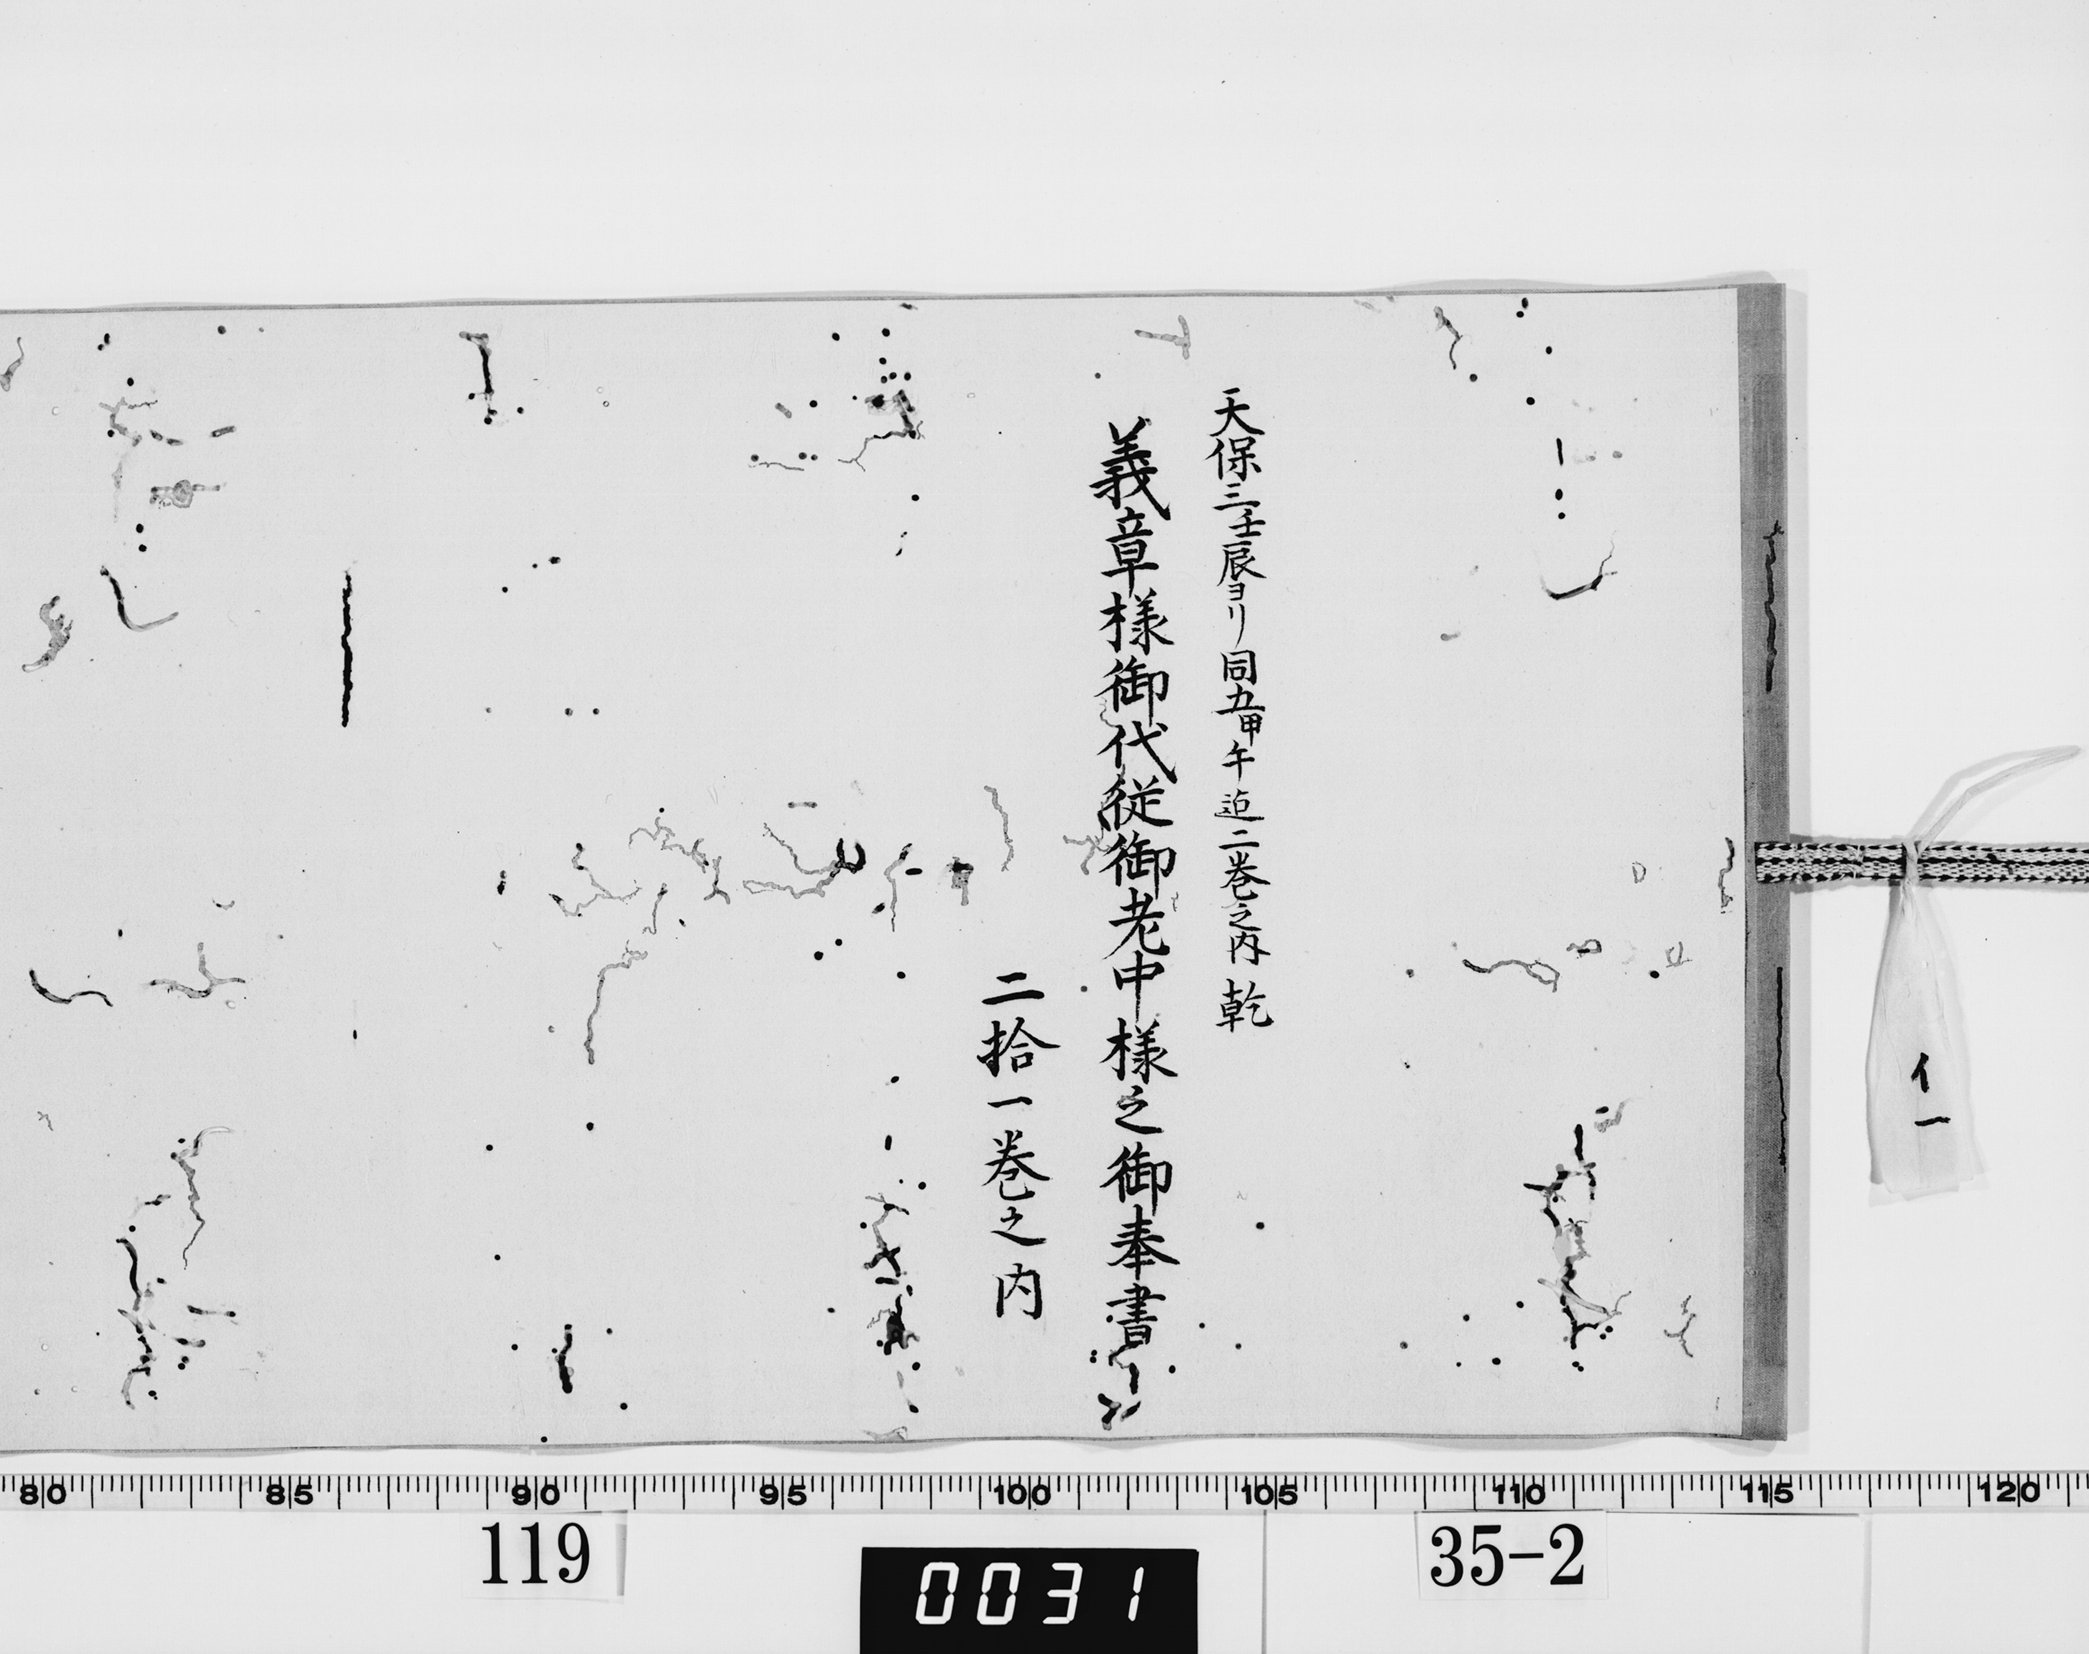 天保三壬辰ヨリ同五甲午迠二巻之内 乾
義章様御代従御老中様之御奉書
二拾一巻之内
イ一
80 85 90 95 100 105 110 115 120
119
0031
35-2